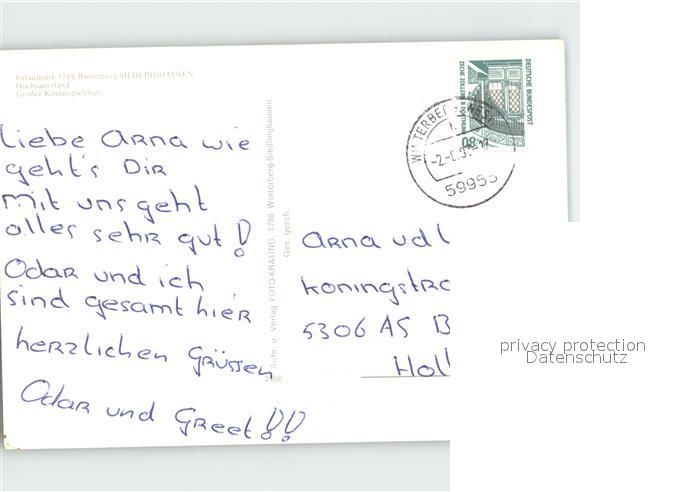 Urlaubsort 5788 Winterberg-SIEDLINGHAUSEN
Hochsauerland
Großer Kinderspielplatz
Liebe Arna wie
geht's Dir
mit uns geht
alles sehr gut!
Odar und ich
sind gesamt hier
herzlichen Grüssen
Odar und Greet!!
Aufn. u. Verlag FOTO-KRALING, 5788 Winterberg-Siedlinghausen
Ges. gesch.
DEUTSCHE BUNDESPOST
ZECHE ZOLLERN II DORTMUND
80
WINTERBERG
59955
Arna v.d.
Koningstra
5306 AS B
Holl
privacy protection
Datenschutz